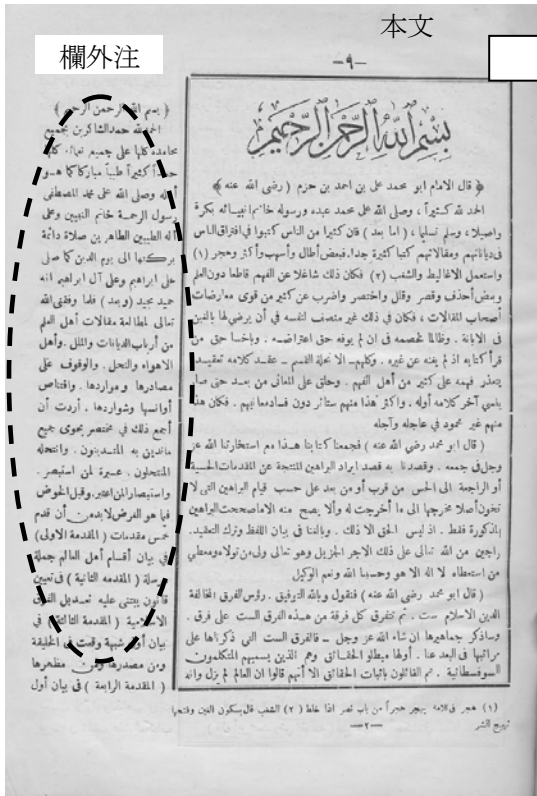 本文
欄外注
—٩—
بسم الله الرحمن الرحيم
﴿ قال الامام ابو محمد على بن احمد بن حزم ( رضى الله عنه ﴾
الحمد لله كثيراً ، وصلى الله على محمد عبده ورسوله خاتم انبيائه بكرة
واصيلا ، وسلم تسليما ، ( اما بعد ) فان كثيرا من الناس كتبوا فى افتراق الناس
فى دياناتهم ومقالاتهم كتبا كثيرة جدا. فبعض أطال وأسهب وأكثر وهجر (١)
واستعمل الاغاليط والشغب (٢) فكان ذلك شاغلا عن الفهم قاطعا دون العلم
وبعض أحذف وقصر وقلل واختصر واضرب عن كثير من قوى معارضات
أصحاب المقالات ، فكان فى ذلك غير منصف لنفسه فى أن يرضى لها بالغبن
فى الابانة . وظالما لخصمه فى ان لم يوفه حق اعتراضه . وباخسا حق من
قرأ كتابه اذ لم يغنه عن غيره . وكلهم الا تحلة القسم عقد كلامه تعقيدا
يتعذر فهمه على كثير من أهل الفهم . وحلق على المعانى من بعد حتى صار
ينسى آخر كلامه أوله . واكثر هذا منهم ستائر دون فساد معانيهم . فكان هذا
منهم غير محمود فى عاجله وآجله
( قال ابو محمد رضى الله عنه ) فجمعنا كتابنا هذا مع استخارتنا الله عز
وجل فى جمعه . وقصدنا به قصد ايراد البراهين المنتجة عن المقدمات الحسية
أو الراجعة الى الحس من قرب أو من بعد على حسب قيام البراهين التى لا
تخون أصلا مخرجها الى ما أخرجت له وألا يصح منه الا ما صححت البراهين
المذكورة فقط . اذ ليس الحق الا ذلك . وبالغنا فى بيان اللفظ وترك التعقيد.
راجين من الله تعالى على ذلك الاجر الجزيل وهو تعالى ولى من تولاه ومعطى
من استعطاه لا اله الا هو وحسبنا الله ونعم الوكيل
( قال ابو محمد رضى الله عنه ) فنقول وبالله التوفيق . رؤس الفرق المخالفة
لدين الاسلام ست . ثم تتفرق كل فرقة من هذه الفرق الست على فرق .
وساذكر جماهيرها ان شاء الله عز وجل — فالفرق الست التى ذكرناها على
مراتبها فى البعد عنا . أولها مبطلو الحقائق وهم الذين يسميهم المتكلمون
السوفسطائية . ثم القائلون باثبات الحقائق الا أنهم قالوا ان العالم لم يزل وانه
(١) هجر فى كلامه يهجر هجراً من باب نصر اذا خلط (٢) الشغب قال بسكون الغين وفتحها
تهييج الشر
—٢—
﴿ بسم الله الرحمن الرحيم ﴾
الحمد لله حمد الشاكرين بجميع
محامده كلها على جميع نعمائه كلها
حمدا كثيراً طيبا مباركا كما هو
أهله وصلى الله على محمد المصطفى
رسول الرحمة خاتم النبيين وعلى
آله الطيبين الطاهرين صلاة دائمة
بركتها الى يوم الدين كما صلى
على ابراهيم وعلى آل ابراهيم انه
حميد مجيد (وبعد) فلما وفقنى الله
تعالى لمطالعة مقالات أهل العلم
من أرباب الديانات والملل . وأهل
الاهواء والنحل . والوقوف على
مصادرها ومواردها . واقتناص
أوانسها وشواردها . أردت أن
أجمع ذلك فى مختصر يحوى جميع
ماتدين به المتدينون . وانتحله
المنتحلون . عبرة لمن استبصر .
واستبصارا لمن اعتبر. وقبل الخوض
فيما هو الغرض لا بد من أن نقدم
خمس مقدمات ( المقدمة الاولى )
فى بيان أقسام أهل العالم جملة
مرسلة ( المقدمه الثانية ) فى تعيين
قانون يبتنى عليه تعديل الفرق
الاسلامية ( المقدمة الثالثة ) فى
بيان أول شبهة وقعت فى الخليقة
ومن مصدرها ومن مظهرها
( المقدمة الرابعة ) فى بيان أول